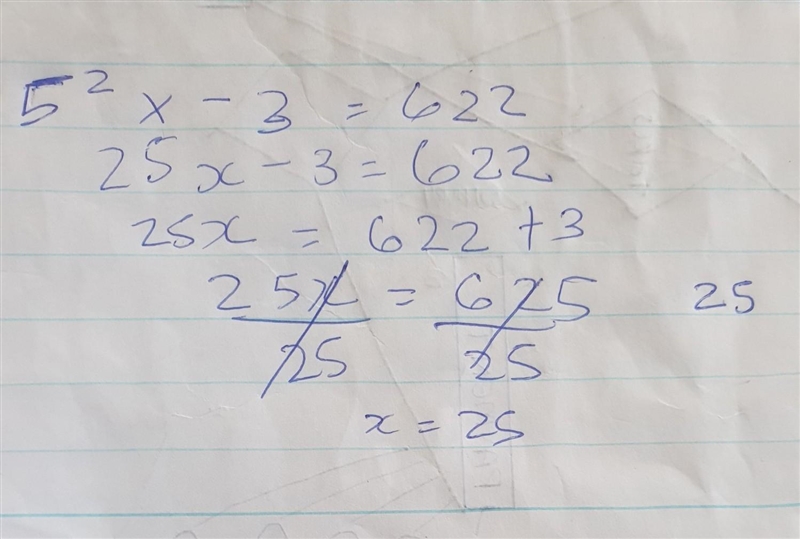 5² x - 3 = 622
25x - 3 = 622
25x = 622 + 3
25x = 625 25
25 25
x = 25